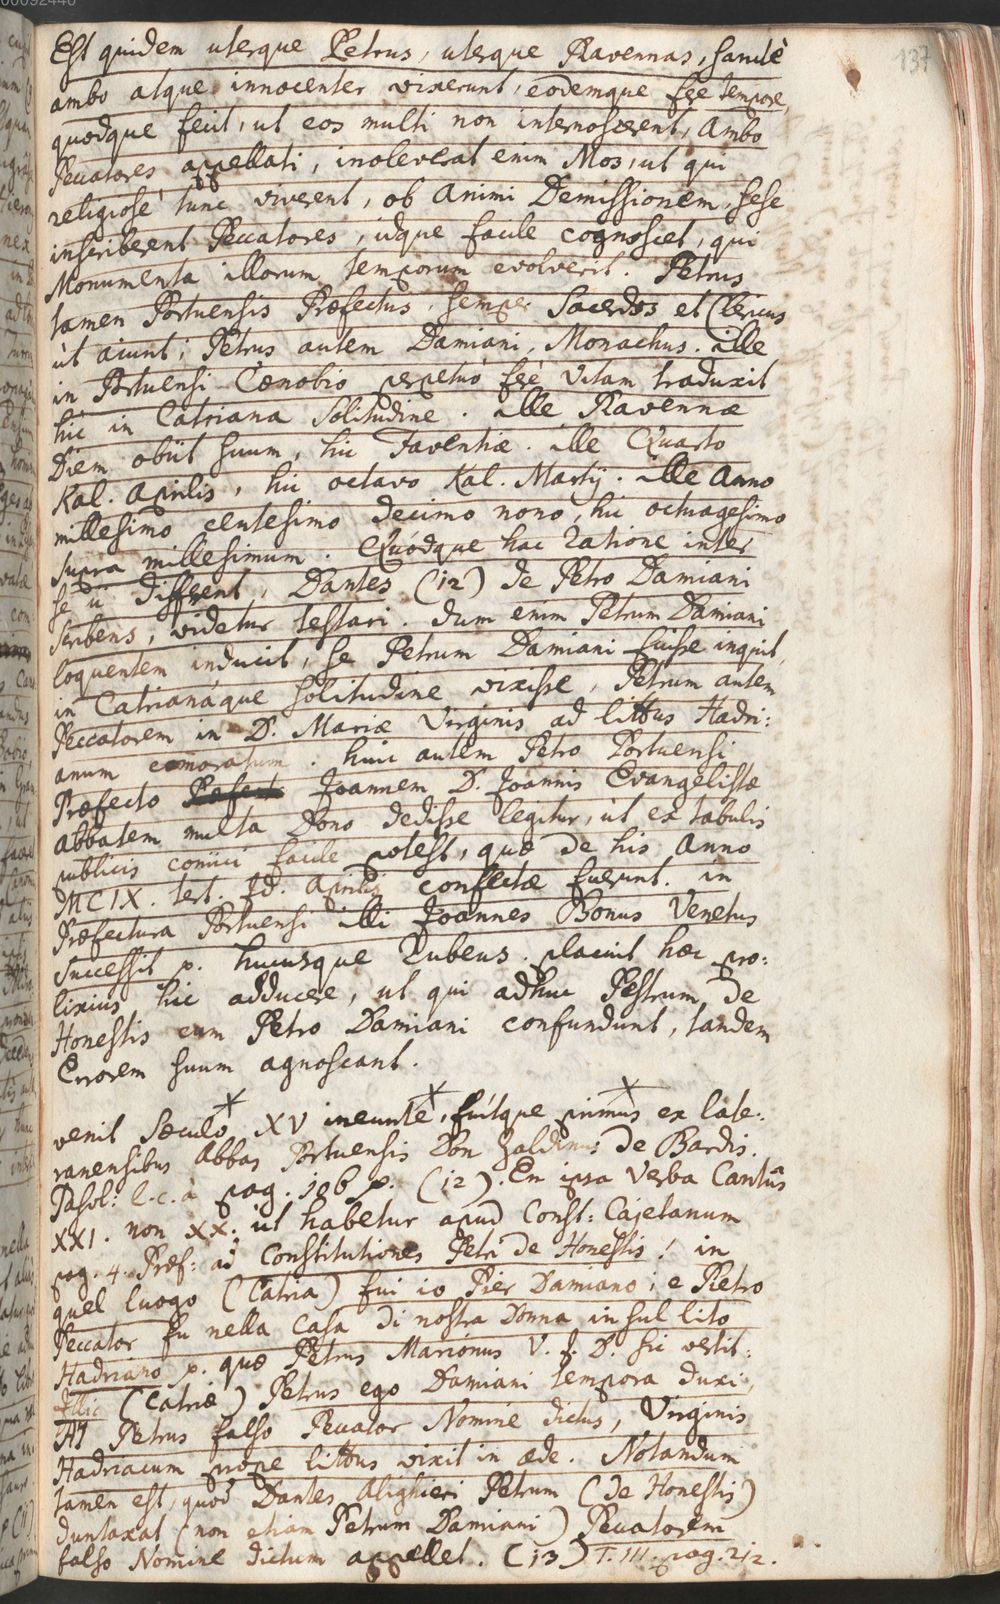 00092440
137
Est quidem uterque Petrus, uterque Ravennas, sanctè
ambo atque innocenter vixerunt, eodemque fere tempore,
quodque fecit, ut eos multi non internoscerent, Ambo
Peccatores appellati, inoleverat enim Mos, ut qui
religiosè tunc viverent, ob Animi Demissionem, sese
inscriberent Peccatores, idque facile cognoscet, qui
Monumenta illorum temporum evolverit. Petrus
tamen Portuensis Præfectus, semper Sacerdos et Clericus
ut aiunt; Petrus autem Damiani, Monachus. ille
in Portuensi Cœnobio perpetuò ferè Vitam traduxit
hic in Catriana Solitudine. ille Ravennæ
Diem obiit suum, hic Faventiæ. ille Quarto
Kal. Aprilis, hic octavo Kal. Martij. ille Anno
millesimo centesimo decimo nono, hic octuagesimo
supra millesimum. Quòdque hac ratione inter
se ii different, Dantes (12) de Petro Damiani
scribens, videtur testari. Dum enim Petrum Damiani
loquentem inducit, se Petrum Damiani fuisse inquit,
in Catrianáque solitudine vixisse, Petrum autem
Peccatorem in D. Mariæ Virginis ad littus Hadri:
anum comoratum. huic autem Petro Portuensi
Præfecto Joannem D. Joannis Evangelistæ
Abbatem multa Dono dedisse legitur, ut ex tabulis
publicis coniici facile potest, quæ de his Anno
MCIX. tert. Id. Aprilis confectæ fuerunt. in
Præfectura Portuensi illi Joannes Bonus Venetus
successit p. hucusque Rubeus. placuit hæc pro:
lixius hic adducere, ut qui adhuc Petrum de
Honestis cum Petro Damiani confundunt, tandem
Errorem suum agnoscant.
venit Sæculo XV ineunte, fuitque primus ex late:
ranensibus Abbas Portuensis Don de Bardis.
Pasol: l.c. à pag. 106 p. (12). En ipsa Verba Cantûs
XXI. non XX. ut habetur apud Const: Cajetanum
pag. 4. Præf: ad Constitutiones Petri de Honestis! in
quel luogo (Catria) fui io Pier Damiano; e Pietro
Peccator fu nella Casa di nostra Donna in sul lito
Hadriano p. quæ Petrus Marionus V. J. D. sic vertit:
Illic (Catriæ) Petrus ego Damiani tempora duxi,
At Petrus falso Peccator Nomine dictus, Virginis
Hadriacum prope littus vixit in æde. Notandum
tamen est, quod Dantes Alighieri Petrum (de Honestis)
duntaxat (non etiam Petrum Damiani) Peccatorem
falso Nomine dictum appellet. (13) T. III. pag. 212.